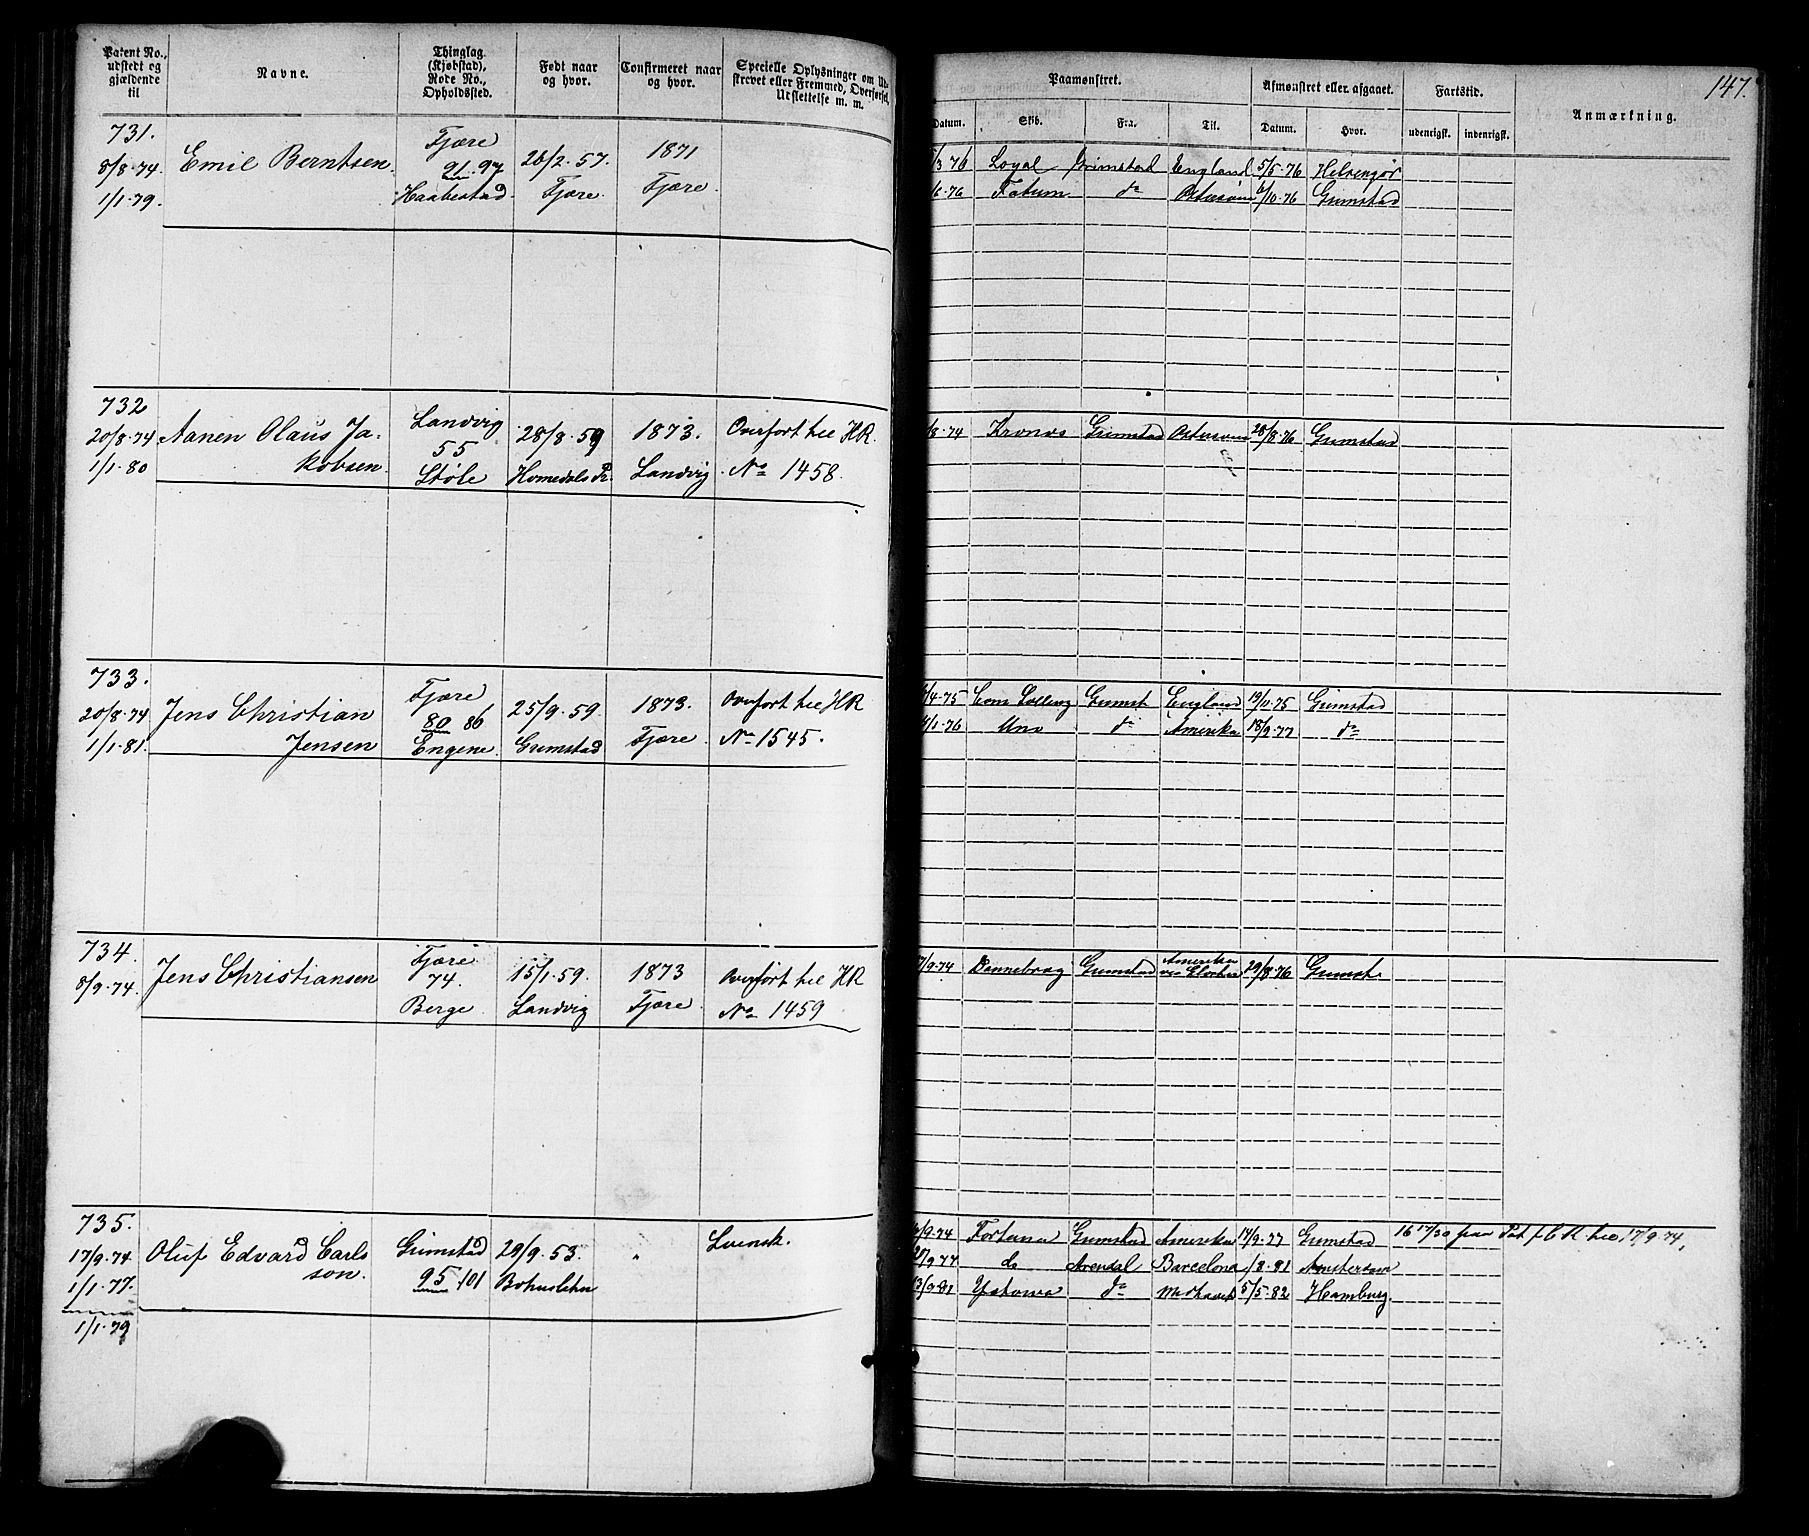 147.
Patent No., udstedt og gjældende til
Navne.
Thinglag (Kjøbstad), Rode No., Opholdssted.
Født naar og hvor.
Confirmeret naar og hvor.
Specielle Oplysninger om Ud-
skrevet eller Fremmed, Overførsel,
Udslettelse m. m.
Paamønstret.
Afmønstret eller afgaaet.
Fartstid.
Anmærkning.
Datum. Skib. Fra. Til. Datum. Hvor. udenrigsk. indenrigsk.
731.
8/8-74
1/1-79.
Emil Berntsen
Fjære
91 97
Haabestad
26/2-57.
Fjære
1871
Fjære
/3 76 Loyal Grimstad England 5/5-76 Helsingør
/6-76 Fatum do Østersøen 6/10-76 Grimstad
732
20/8-74
1/1-80
Aanen Olaus Ja-
kobsen
Landvig
55
Støle
28/8-59
Homedals P.
1873.
Landvig
Overført til HR
No 1458.
/8-74 Kronos Grimstad Østersøen 28/8-76 Grimstad
733.
20/8-74
1/1-81.
Jens Christian
Jensen
Fjære
80 86
Engene
25/9-59
Grimstad
1873.
Fjære
Overført til HR
No 1545.
/4-75 Grimst England 19/11-75 Grimstad
/1-76 Uno do Amerika 18/9-77 do
734.
8/9-74.
Jens Christiansen
Fjære
74.
Berge
15/1-59.
Landvig
1873
Fjære
Overført til HR
No 1459
7/9-74 Dannebrog Grimstad Amerika 29/8-76 Grimst.
735.
17/9-74
1/1-77.
1/1-79
Oluf Edvard Carls
son.
Grimstad
95 101
29/9-53.
Bohuslehn
"
Svensk.
/9-74 Fortuna Grimstad Amerika 14/9-77 Grimstad 16 17/30 paa Pat f. C R. til 17/9-74,
20/9 77 do Arendal Barcelona /8-81 Amsterdam
13/9-81 do 5/5-82 Hamburg.